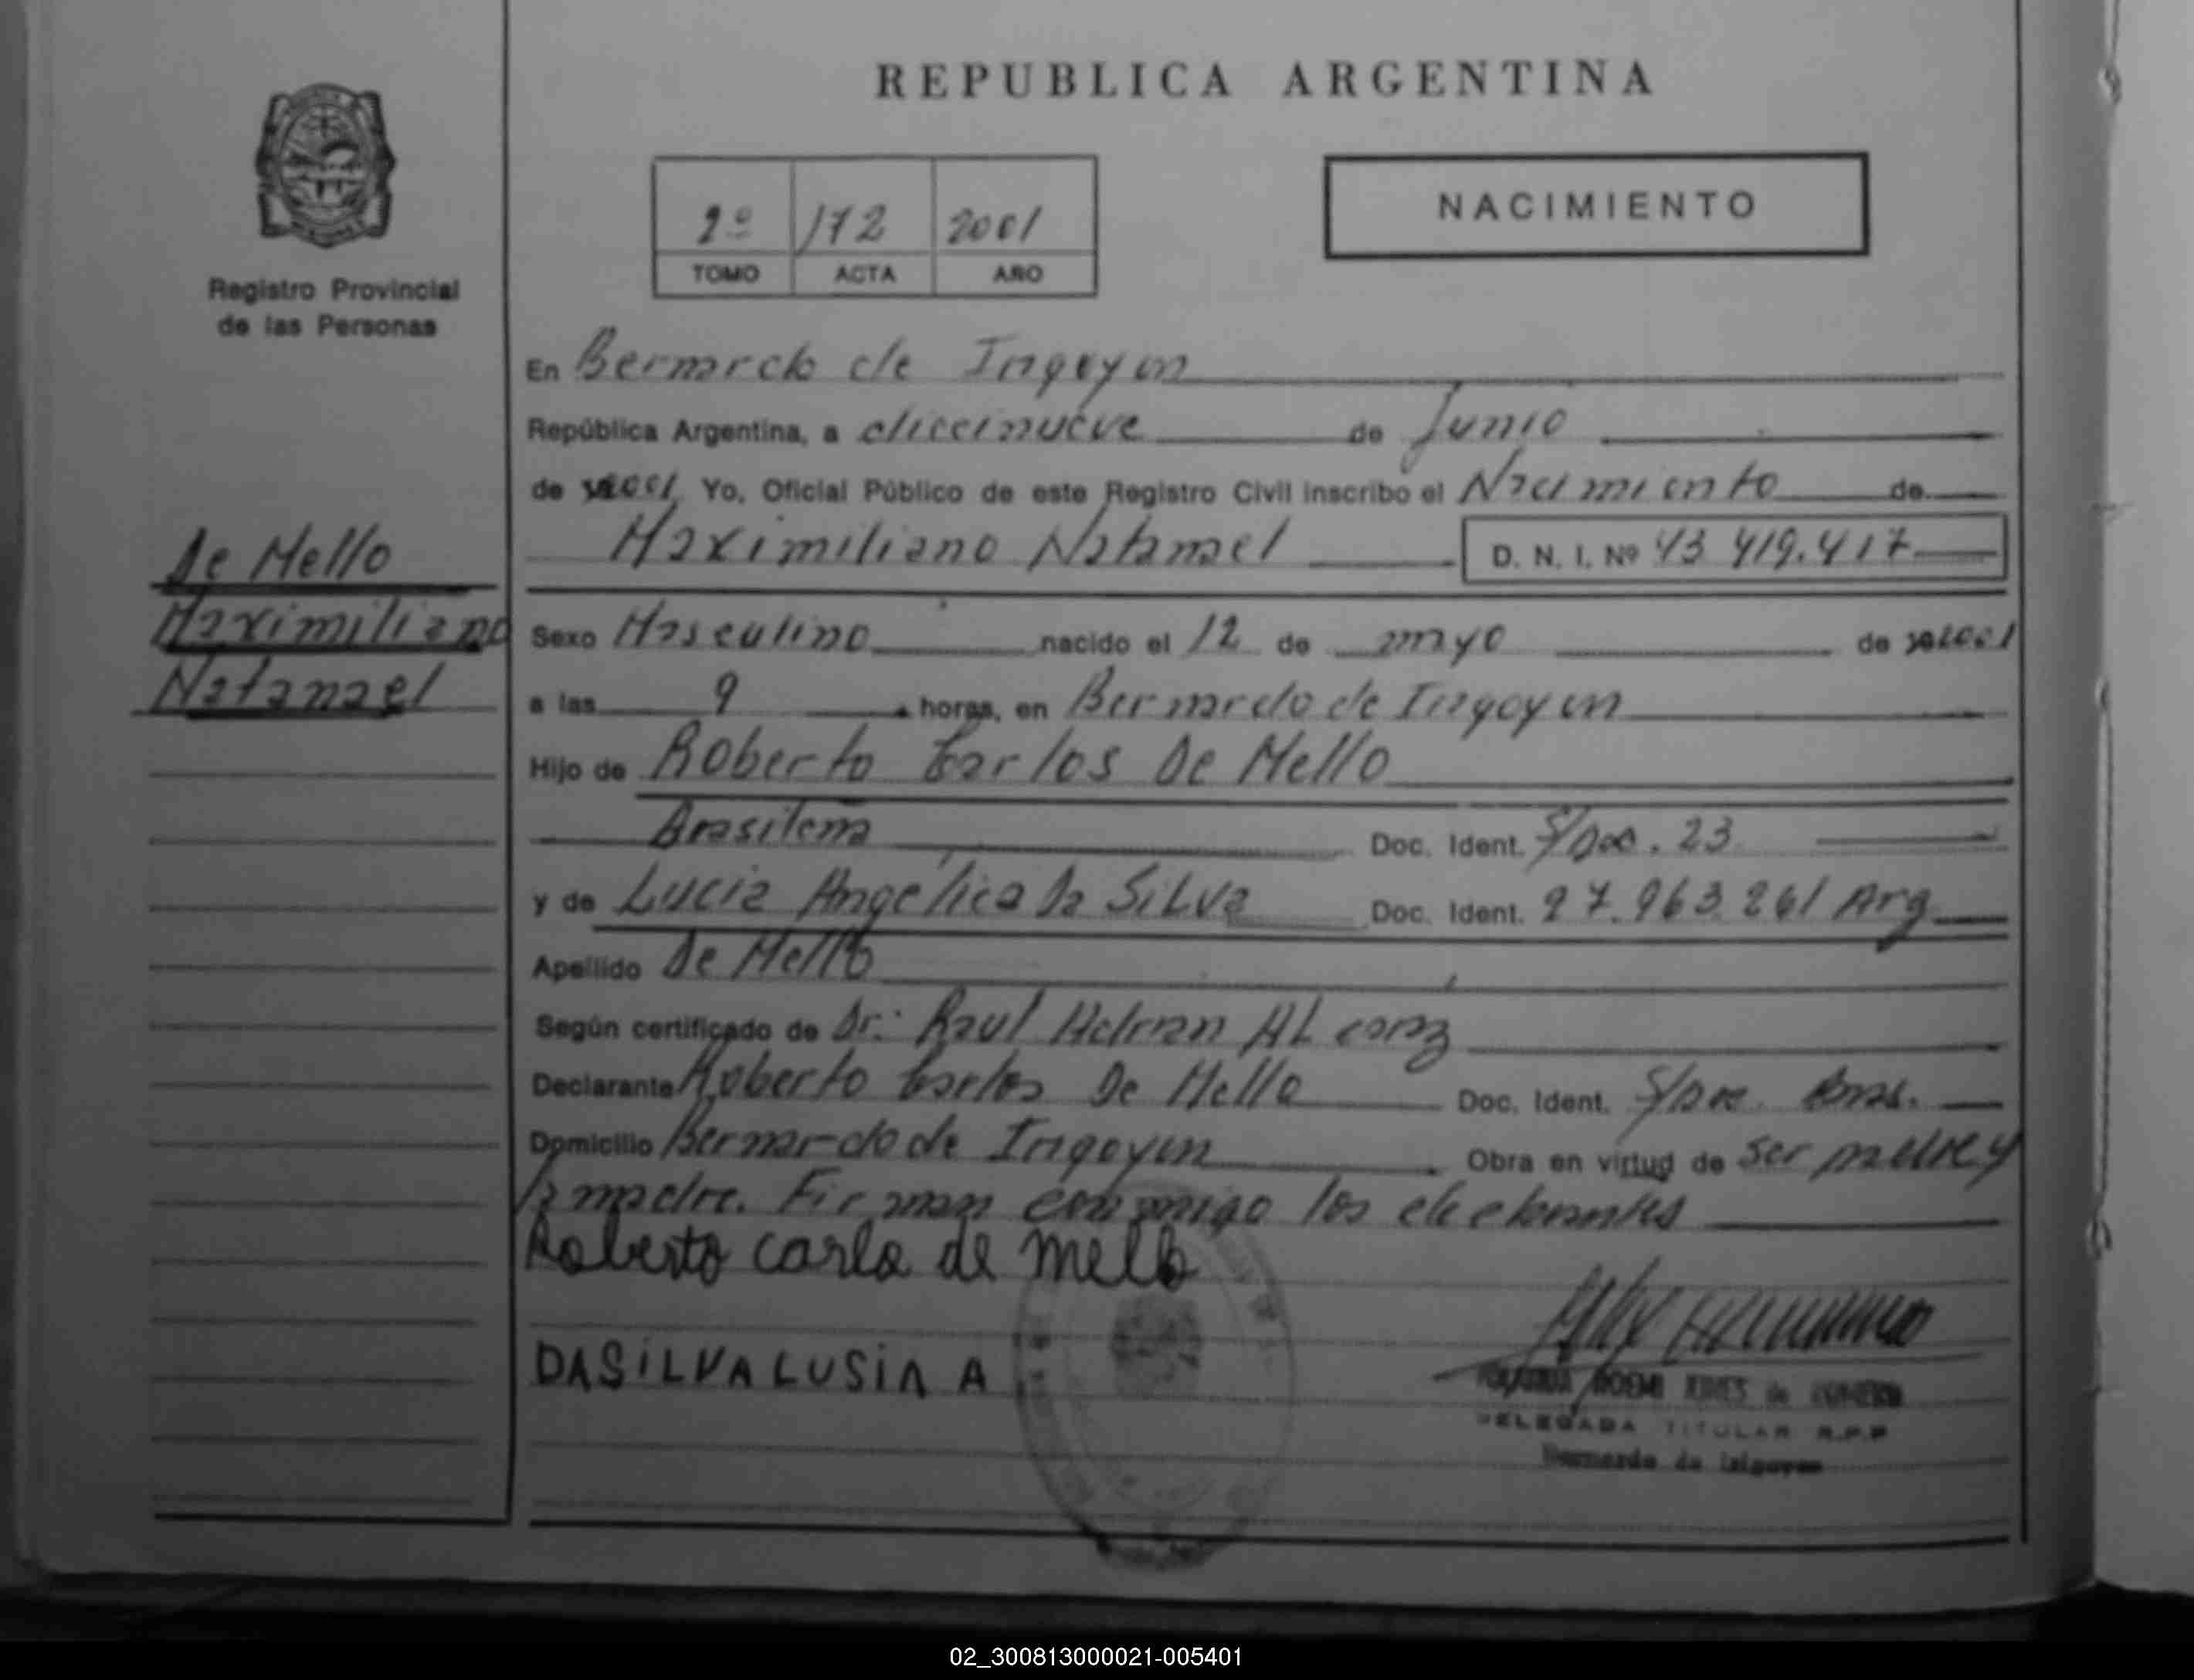 REPUBLICA ARGENTINA
2º 172 2001
TOMO ACTA AÑO
NACIMIENTO
Registro Provincial
de las Personas
De Mello
Maximiliano
Natanael
En Bernardo de Irigoyen
República Argentina, a diecinueve de Junio
de 2001 Yo, Oficial Público de este Registro Civil inscribo el Nacimiento de
Maximiliano Natanael D. N. I. Nº 43 419.417
Sexo Masculino nacido el 12 de mayo de 2001
a las 9 horas, en Bernardo de Irigoyen
Hijo de Roberto Carlos De Mello
Brasileña Doc. Ident. S/Doc. 23
y de Lucia Angélica Da Silva Doc. Ident. 27.963.261 Arg
Apellido De Mello
Según certificado de Dr: Raul Adrian
Declarante Roberto Carlos De Mello Doc. Ident. S/Doc. Bras.
Domicilio Bernardo de Irigoyen Obra en virtud de ser
la madre. Firman conmigo los declarantes
Roberto carlo de mello
DASiLVA LUSiA A
NOEMI de
DELEGADA TITULAR R.P.P
Bernardo de Irigoyen
02_300813000021-005401